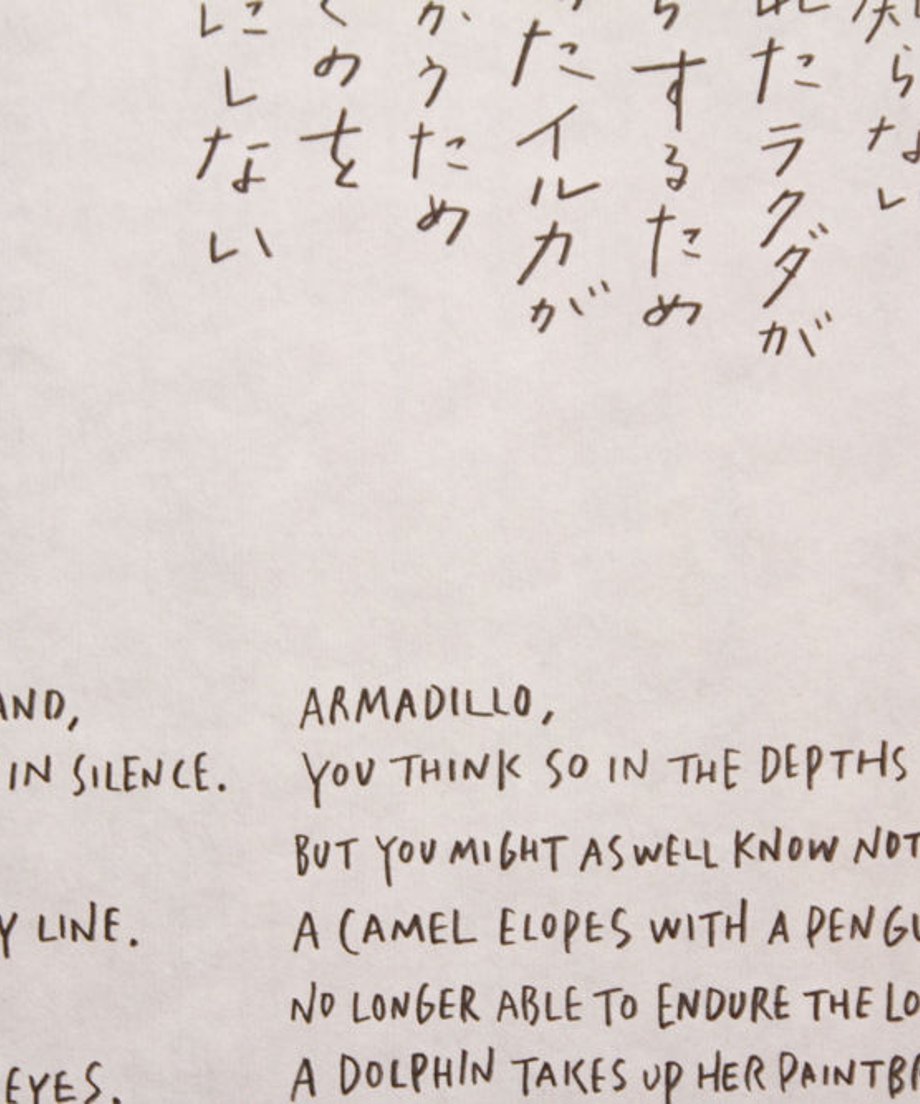 らない
たラクダが
らするため
たイルカが
かうため
くのを
にしない
AND,
IN SILENCE.
Y LINE.
EYES,
ARMADILLO,
YOU THINK SO IN THE DEPTHS
BUT YOU MIGHT AS WELL KNOW NOT
A CAMEL ELOPES WITH A PENGU
NO LONGER ABLE TO ENDURE THE LO
A DOLPHIN TAKES UP HER PAINTBR